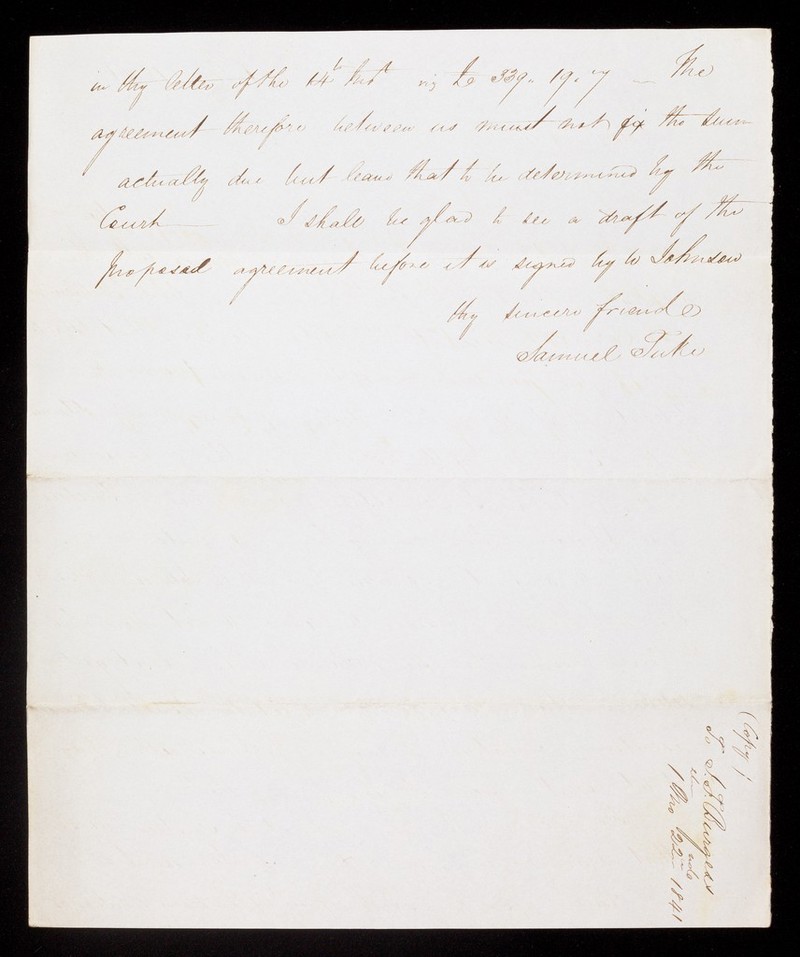 in thy letter of the 14th Inst viz £ 339. 19. 7 — The
agreement therefore between us must not fix the sum
actually due but leave that to be determined by the
Court — I shall be glad to see a draft of the
proposed agreement before it is signed by W Johnson
thy sincere friend
Samuel Tuke
(Copy)
To T. F. Burgess
1 Mo 22nd 1841